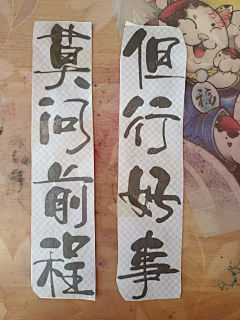 但行好事
莫问前程
福